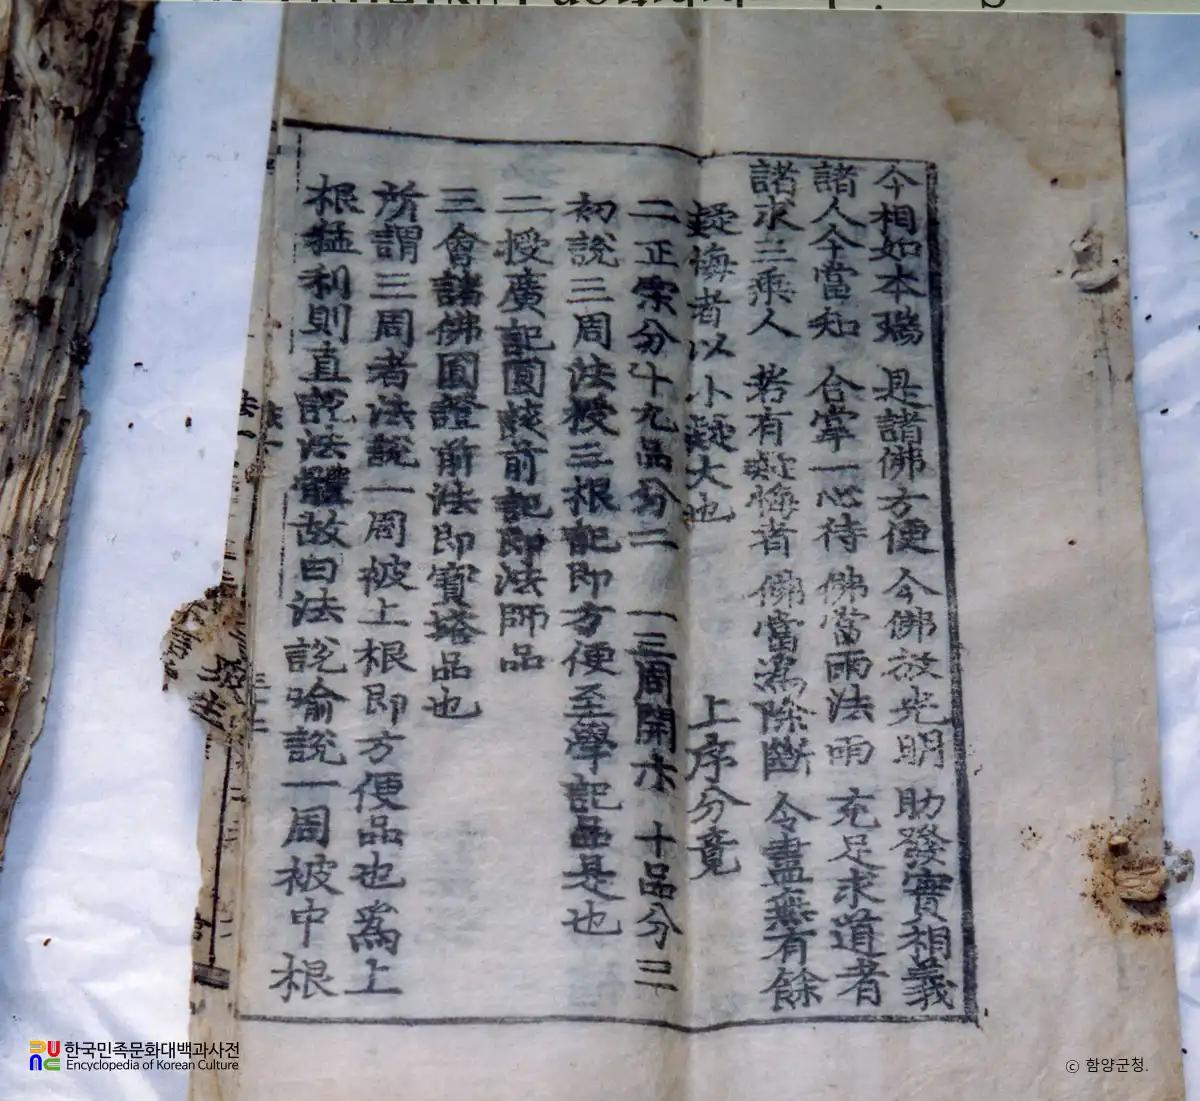 今相如本瑞 是諸佛方便 今佛放光明 助發實相義
諸人今當知 合掌一心待 佛當雨法雨 充足求道者
諸求三乘人 若有疑悔者 佛當爲除斷 令盡無有餘
疑悔者以小疑大也 上序分竟
二正宗分十九品分二 一三周開示 十品分三
初說三周法授三根記即方便至學記品是也
二授廣記圓該前記即法師品
三會諸佛圓證前法即寶塔品也
所謂三周者法說一周被上根即方便品也爲上
根猛利則直說法體故曰法說喻說一周被中根
한국민족문화대백과사전
Encyclopedia of Korean Culture
ⓒ 함양군청.